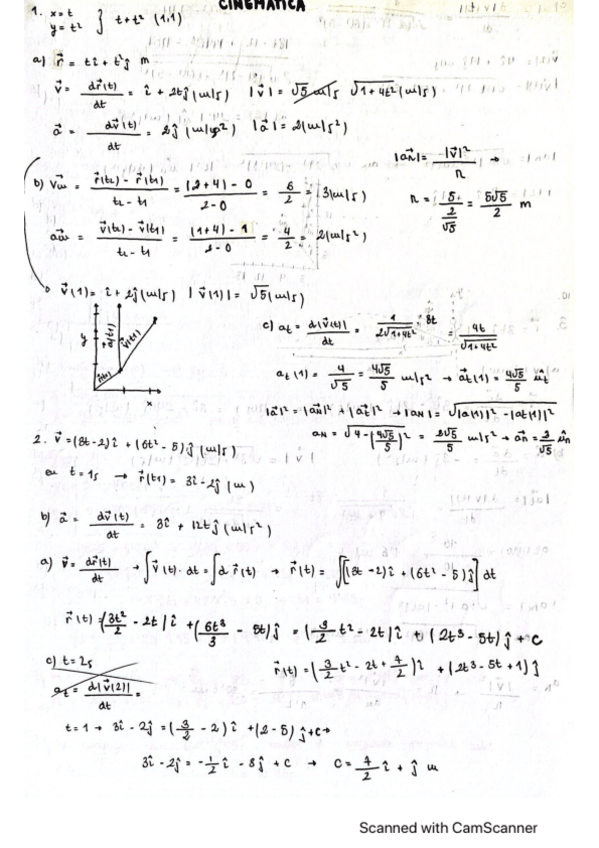 CINEMATICA
1. x=t
y=t² } t+t² (1,1)
a) r⃗ = tî + t²ĵ m
v⃗ = dr⃗(t)/dt = î + 2tĵ (m/s) |v⃗| = √5 m/s √(1+4t²) (m/s)
a⃗ = dv⃗(t)/dt = 2ĵ (m/s²) |a⃗| = 2(m/s²)
|aN| = |v⃗|²/r →
b) vm = (r⃗(t₂) - r⃗(t₁))/(t₂ - t₁) = (|2+4| - 0)/(2-0) = 6/2 = 3(m/s)
r = |5|/(2/√5) = 5√5/2 m
am = (v⃗(t₂) - v⃗(t₁))/(t₂ - t₁) = ((1+4) - 1)/(2-0) = 4/2 = 2(m/s²)
v⃗(1) = î + 2ĵ (m/s) |v⃗(1)| = √5 (m/s)
y
x
c) at = d|v⃗(t)|/dt = 1/(2√(1+4t²)) 8t = 4t/√(1+4t²)
at(1) = 4/√5 = 4√5/5 m/s² → a⃗t(1) = 4√5/5 ût
|a⃗|² = |a⃗N|² + |a⃗t|² → |aN| = √(|a(1)|² - |at(1)|²)
aN = √(4 - (4√5/5)²) = 2√5/5 m/s² → a⃗n = 2/√5 ûn
2. v⃗ = (3t-2)î + (6t² - 5)ĵ (m/s)
en t = 1s → r⃗(t₁) = 3î - 2ĵ (m)
b) a⃗ = dv⃗(t)/dt = 3î + 12tĵ (m/s²)
a) v⃗ = dr⃗(t)/dt → ∫v⃗(t)·dt = ∫d r⃗(t) → r⃗(t) = ∫[(3t-2)î + (6t² - 5)ĵ] dt
r⃗(t) = (3t²/2 - 2t)î + (6t³/3 - 5t)ĵ = (3/2 t² - 2t)î + (2t³ - 5t)ĵ + C
c) t = 2s
r⃗(t) = (3/2 t² - 2t + 7/2)î + (2t³ - 5t + 1)ĵ
at = d|v⃗(2)|/dt =
t = 1 → 3î - 2ĵ = (3/2 - 2)î + (2-5)ĵ + C →
3î - 2ĵ = -1/2 î - 3ĵ + C → C = 7/2 î + ĵ m
Scanned with CamScanner